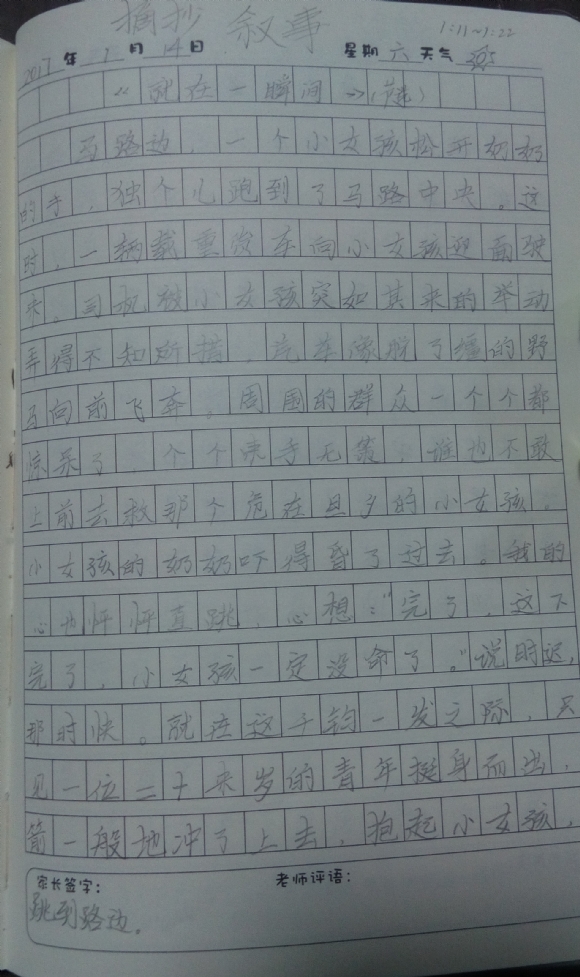 摘抄 叙事 1:11~1:22
2017年1月14日 星期六 天气
《就在一瞬间》(续)
马路边，一个小女孩松开奶奶
的手，独个儿跑到了马路中央。这
时，一辆载重货车向小女孩迎面驶
来，司机被小女孩突如其来的举动
弄得不知所措，汽车像脱了缰的野
马向前飞奔。周围的群众一个个都
惊呆了，个个束手无策，谁也不敢
上前去救那个危在旦夕的小女孩。
小女孩的奶奶吓得昏了过去。我的
心也怦怦直跳，心想：“完了，这下
完了，小女孩一定没命了。”说时迟，
那时快。就在这千钧一发之际，只
见一位二十来岁的青年挺身而出，
箭一般地冲了上去，抱起小女孩，
家长签字： 老师评语：
跳到路边。